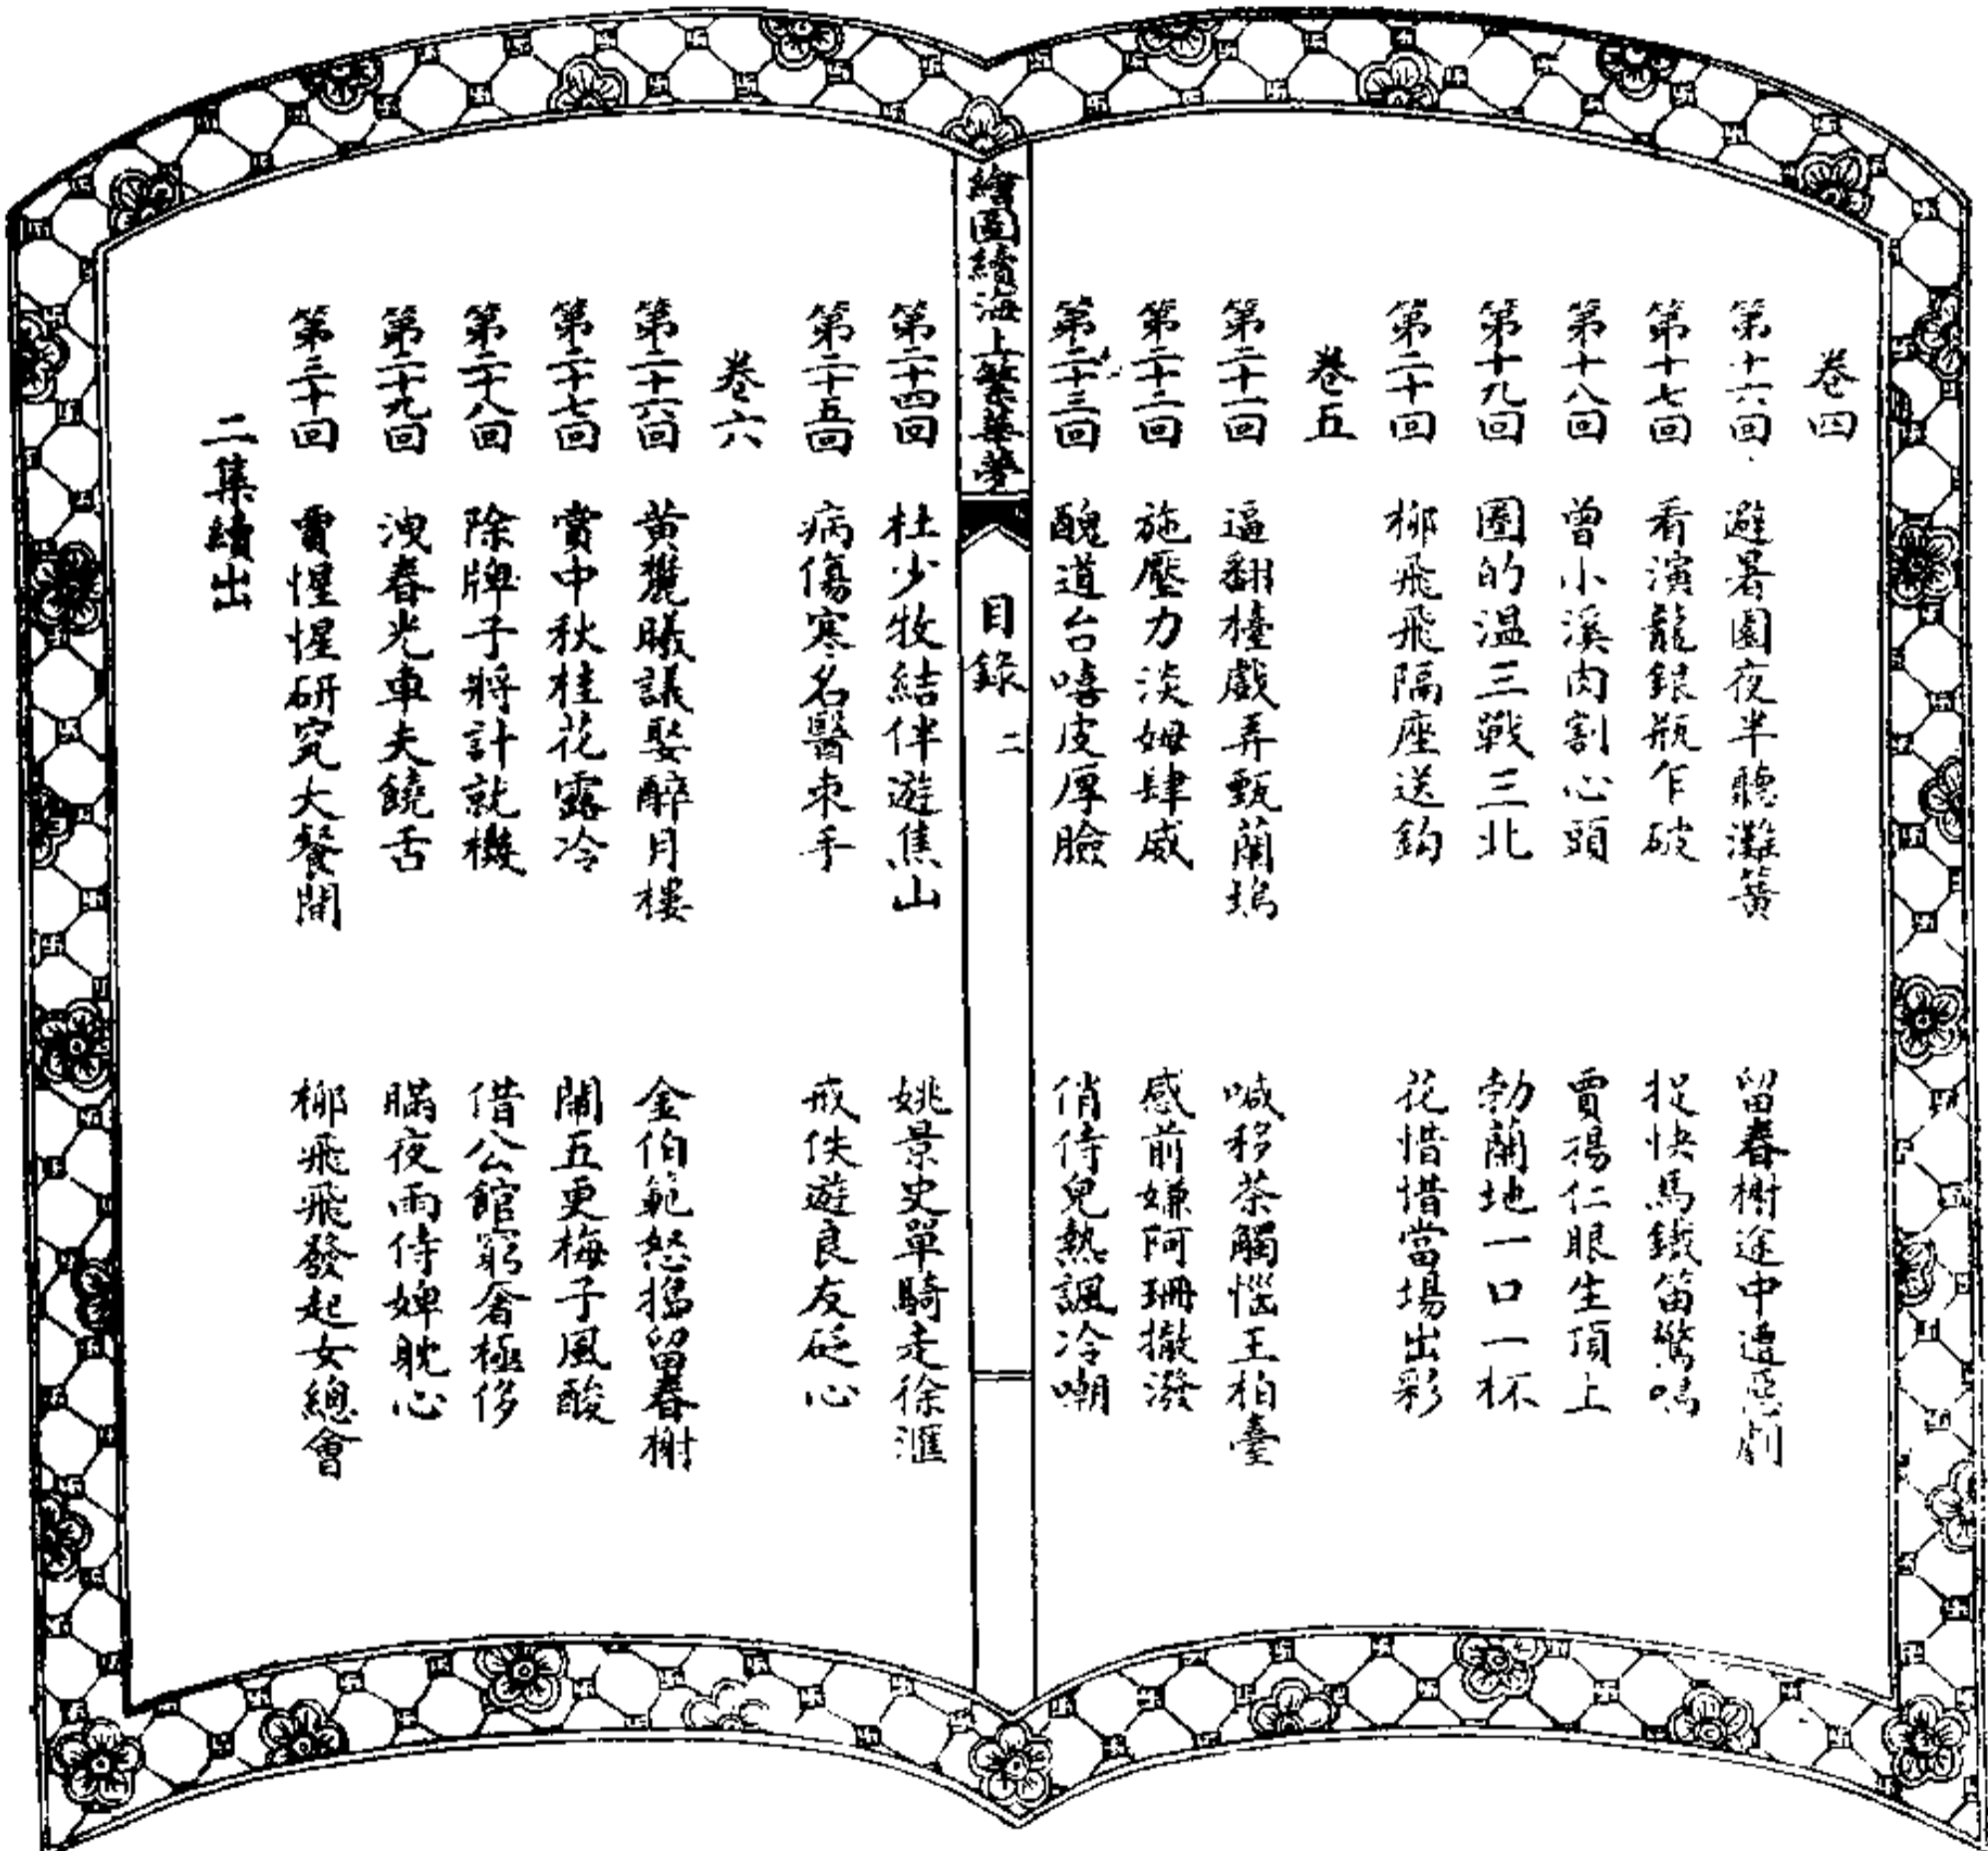 卷四
第十六回 避暑園夜半聽灘簧 留春榭途中遭惡劇
第十七回 看演龍銀瓶乍破 捉快馬鐵笛驚鳴
第十八回 曾小溪肉割心頭 賈揚仁眼生頂上
第十九回 圈的溫三戰三北 勃蘭地一口一杯
第二十回 柳飛飛隔座送鈎 花惜惜當場出彩
卷五
第二十一回 逼翻檯戲弄甄蘭塢 喊移茶觸惱王柏臺
第二十二回 施壓力淡姆肆威 感前嫌阿珊撒潑
第二十三回 醜道台嘻皮厚臉 俏侍兒熱諷冷嘲
繪圖續海上繁華夢 目錄 二
第二十四回 杜少牧結伴遊焦山 姚景史單騎走徐滙
第二十五回 病傷寒名醫束手 戒佚遊良友砭心
卷六
第二十六回 黄麓曦議娶醉月樓 金伯範怒搗留春榭
第二十七回 賞中秋桂花露冷 鬧五更梅子風酸
第二十八回 除牌子將計就機 借公館窮奢極侈
第二十九回 洩春光車夫饒舌 瞞夜雨侍婢耽心
第三十回 賈惺惺研究大餐間 柳飛飛發起女總會
二集續出